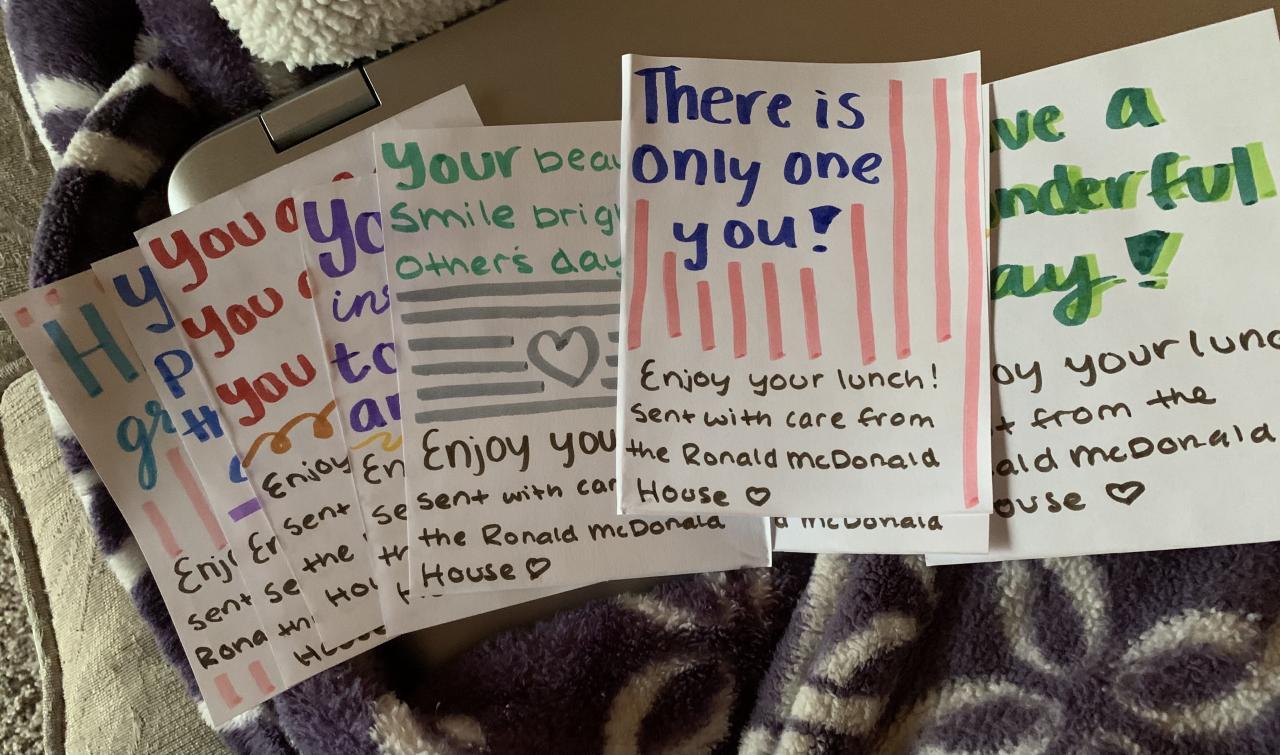 H
gr
Enj
sent
Rona
y
p
H
Er
se
th
House
You a
You
You
Enjoy
sent
the
Hou
Yo
ins
to
an
En
se
th
H
Your beau
smile brig
other's day
Enjoy you
sent with car
the Ronald McDonald
House ♡
There is
only one
you!
Enjoy your lunch!
sent with care from
the Ronald McDonald
House ♡
d McDonald
ve a
nderful
ay!
oy your lunc
t from the
ald McDonald
ouse ♡